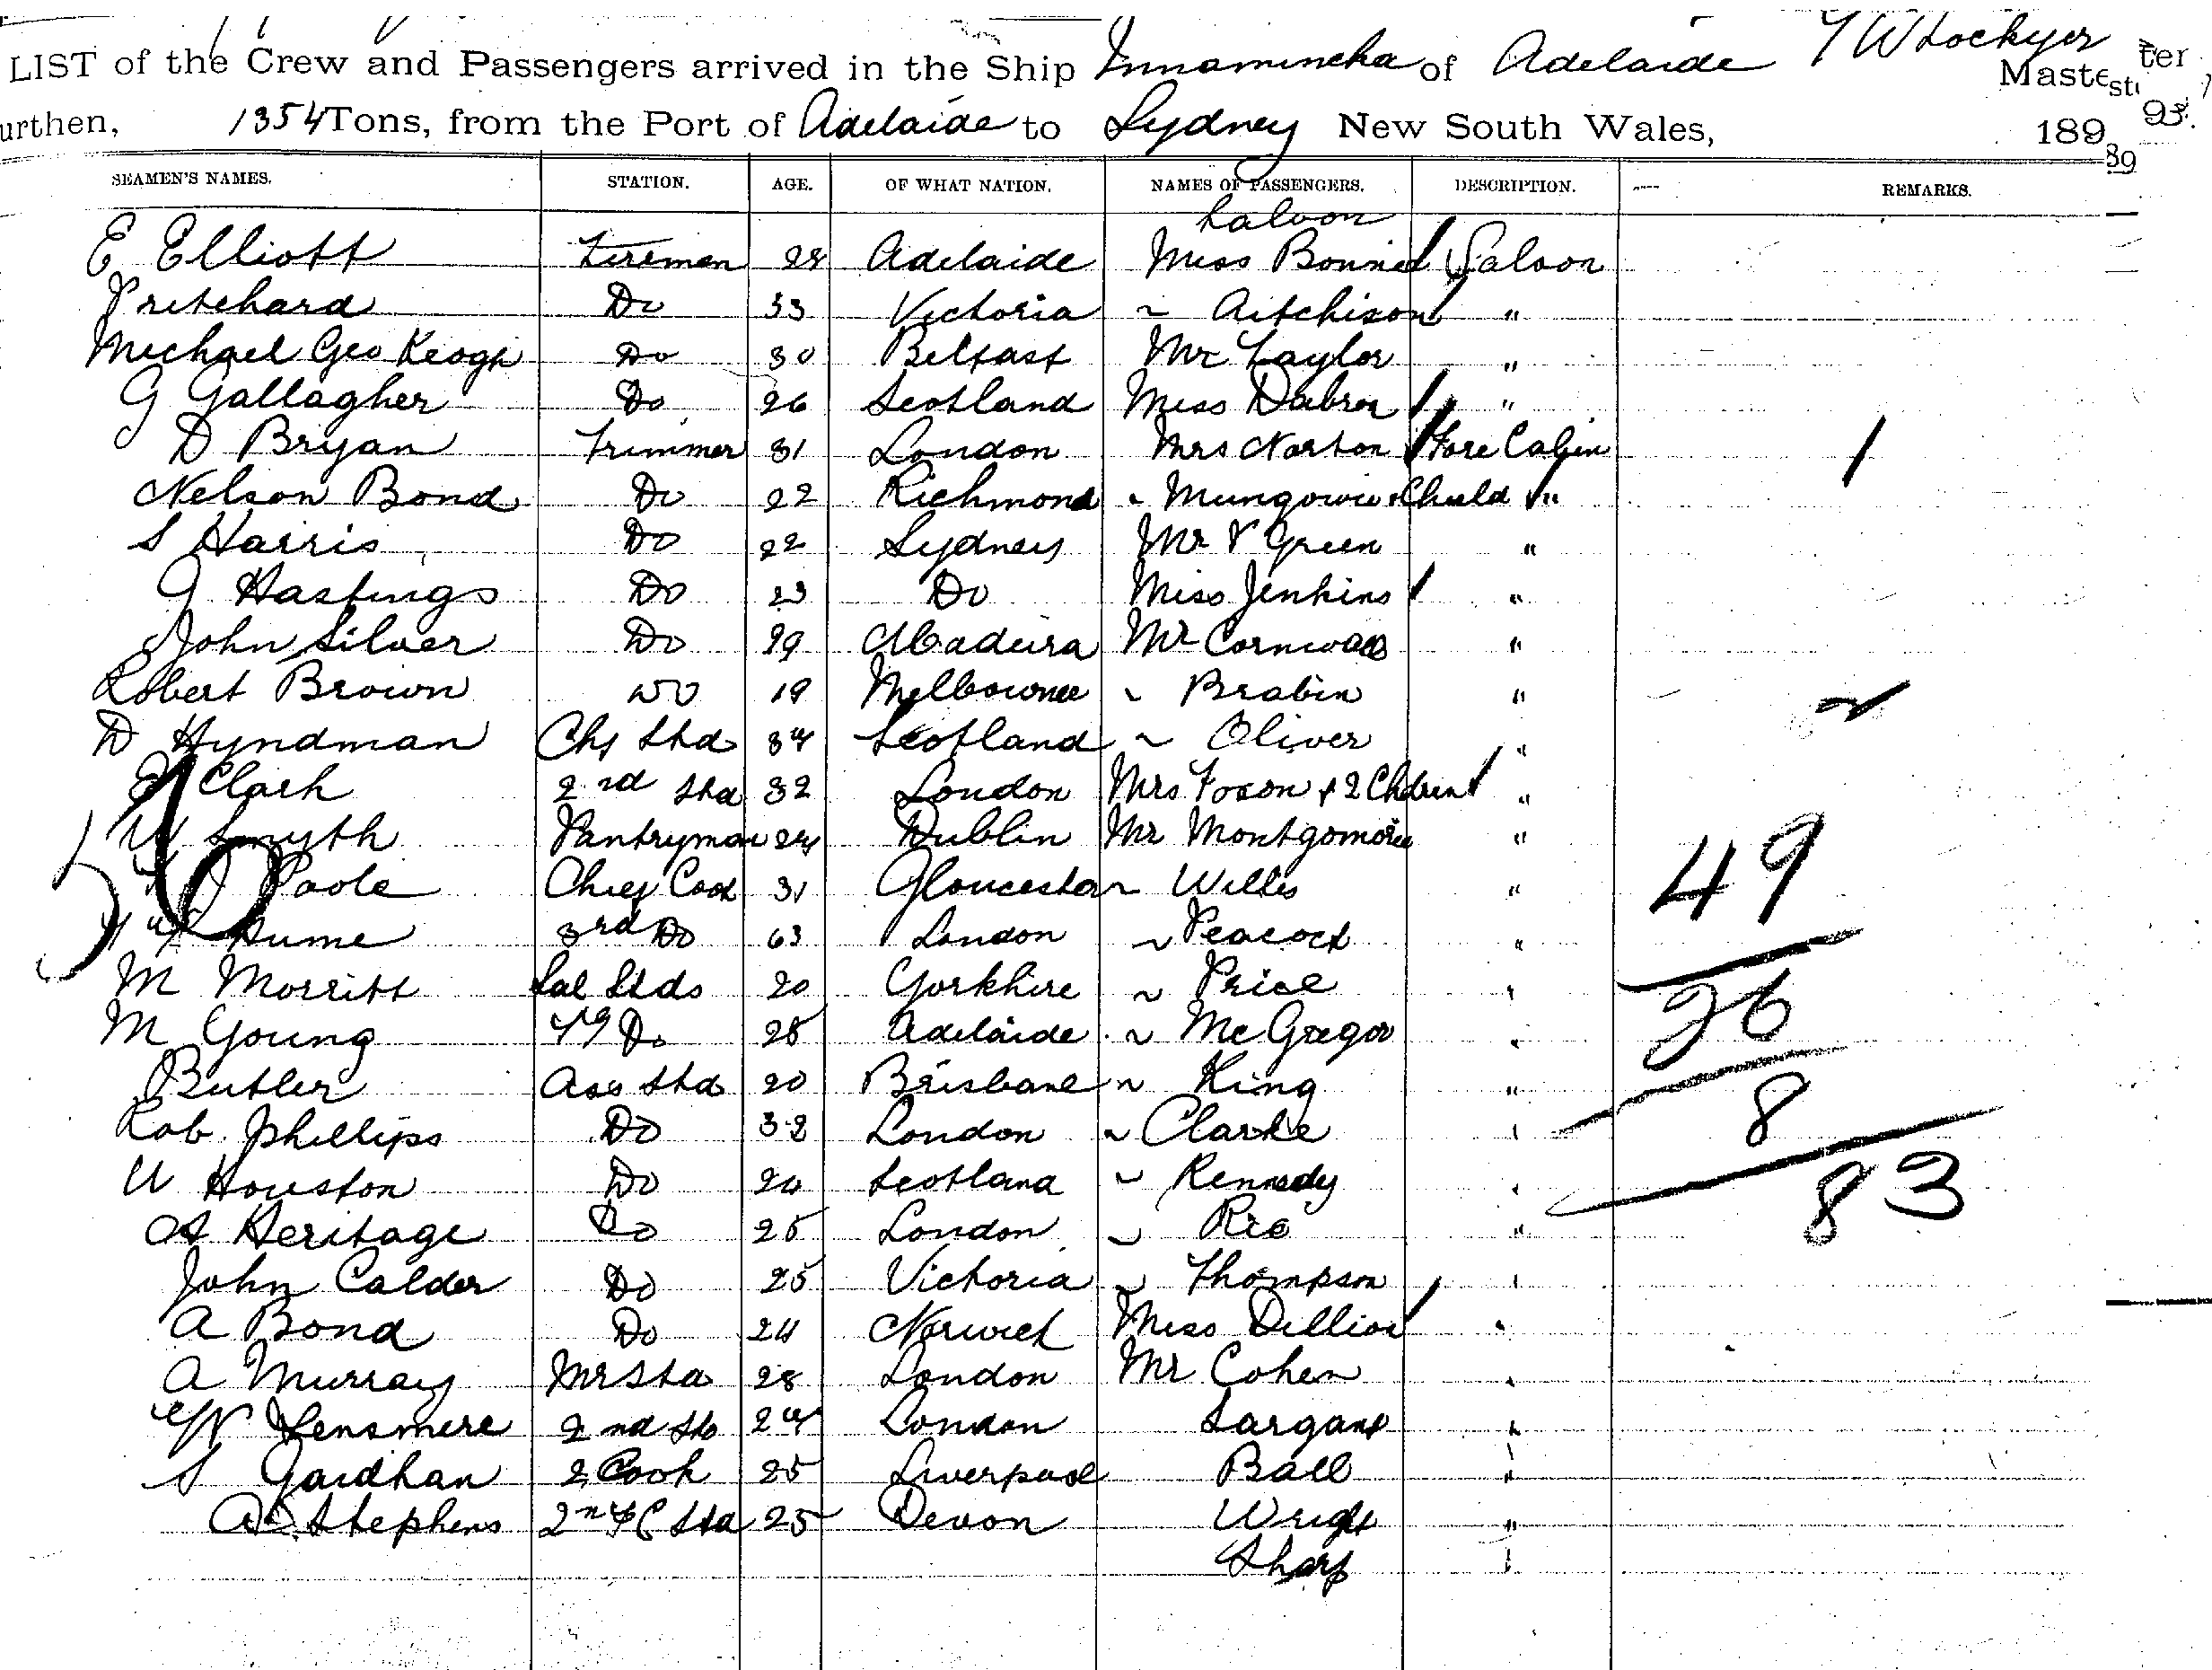 LIST of the Crew and Passengers arrived in the Ship Innamincka of Adelaide T W Lockyer Master
urthen, 1354 Tons, from the Port of Adelaide to Sydney New South Wales, 189
93.
SEAMEN'S NAMES. STATION. AGE. OF WHAT NATION. NAMES OF PASSENGERS. DESCRIPTION. REMARKS.
Saloon
E Elliott Fireman 28 Adelaide Miss Bonnie Saloon
Pritchard Do 33 Victoria ~ Aitchison "
Michael Geo Keogh Do 30 Belfast Mr Taylor "
G Gallagher Do 26 Scotland Miss "
D Bryan Trimmer 31 London Mrs Norton Fore Cabin
Nelson Bond Do 22 Richmond ~ Mungovie & Child "
S Harris Do 22 Sydney Mr V Green "
G Hastings Do 23 Do Miss Jenkins "
John Silver Do 29 Madeira Mr Cornwall "
Robert Brown Do 19 Melbourne ~ Brabin "
D Hyndman Chf Std 34 Scotland ~ Oliver "
Clark 2nd Std 32 London Mrs Foxon & 2 Chdren "
W Smyth Pantryman 24 Dublin Mr Montgomerie "
Poole Chief Cook 31 Gloucester ~ Willis "
Hume 3rd Do 63 London ~ Peacock "
M Morritt Sal Stds 20 Yorkhire ~ Price "
M Young Do 25 Adelaide ~ McGregor "
Butler Ass Std 20 Brisbane ~ King "
Rob Phillips Do 32 London ~ Clarke "
W Houston Do 24 Scotland ~ Kennedy "
A Heritage Do 25 London ~ Rie "
John Calder Do 25 Victoria ~ Thompson "
A Bond Do 24 Norwich Miss Dillion "
A Murray Std 28 London Mr Cohen "
W Lensmere 2nd Std 24 London Sargant "
S Gaidhan 2 Cook 25 Liverpool Ball "
A Stephens 2nd Std 25 Devon Wright "
Sharp "
56
49
26
8
83